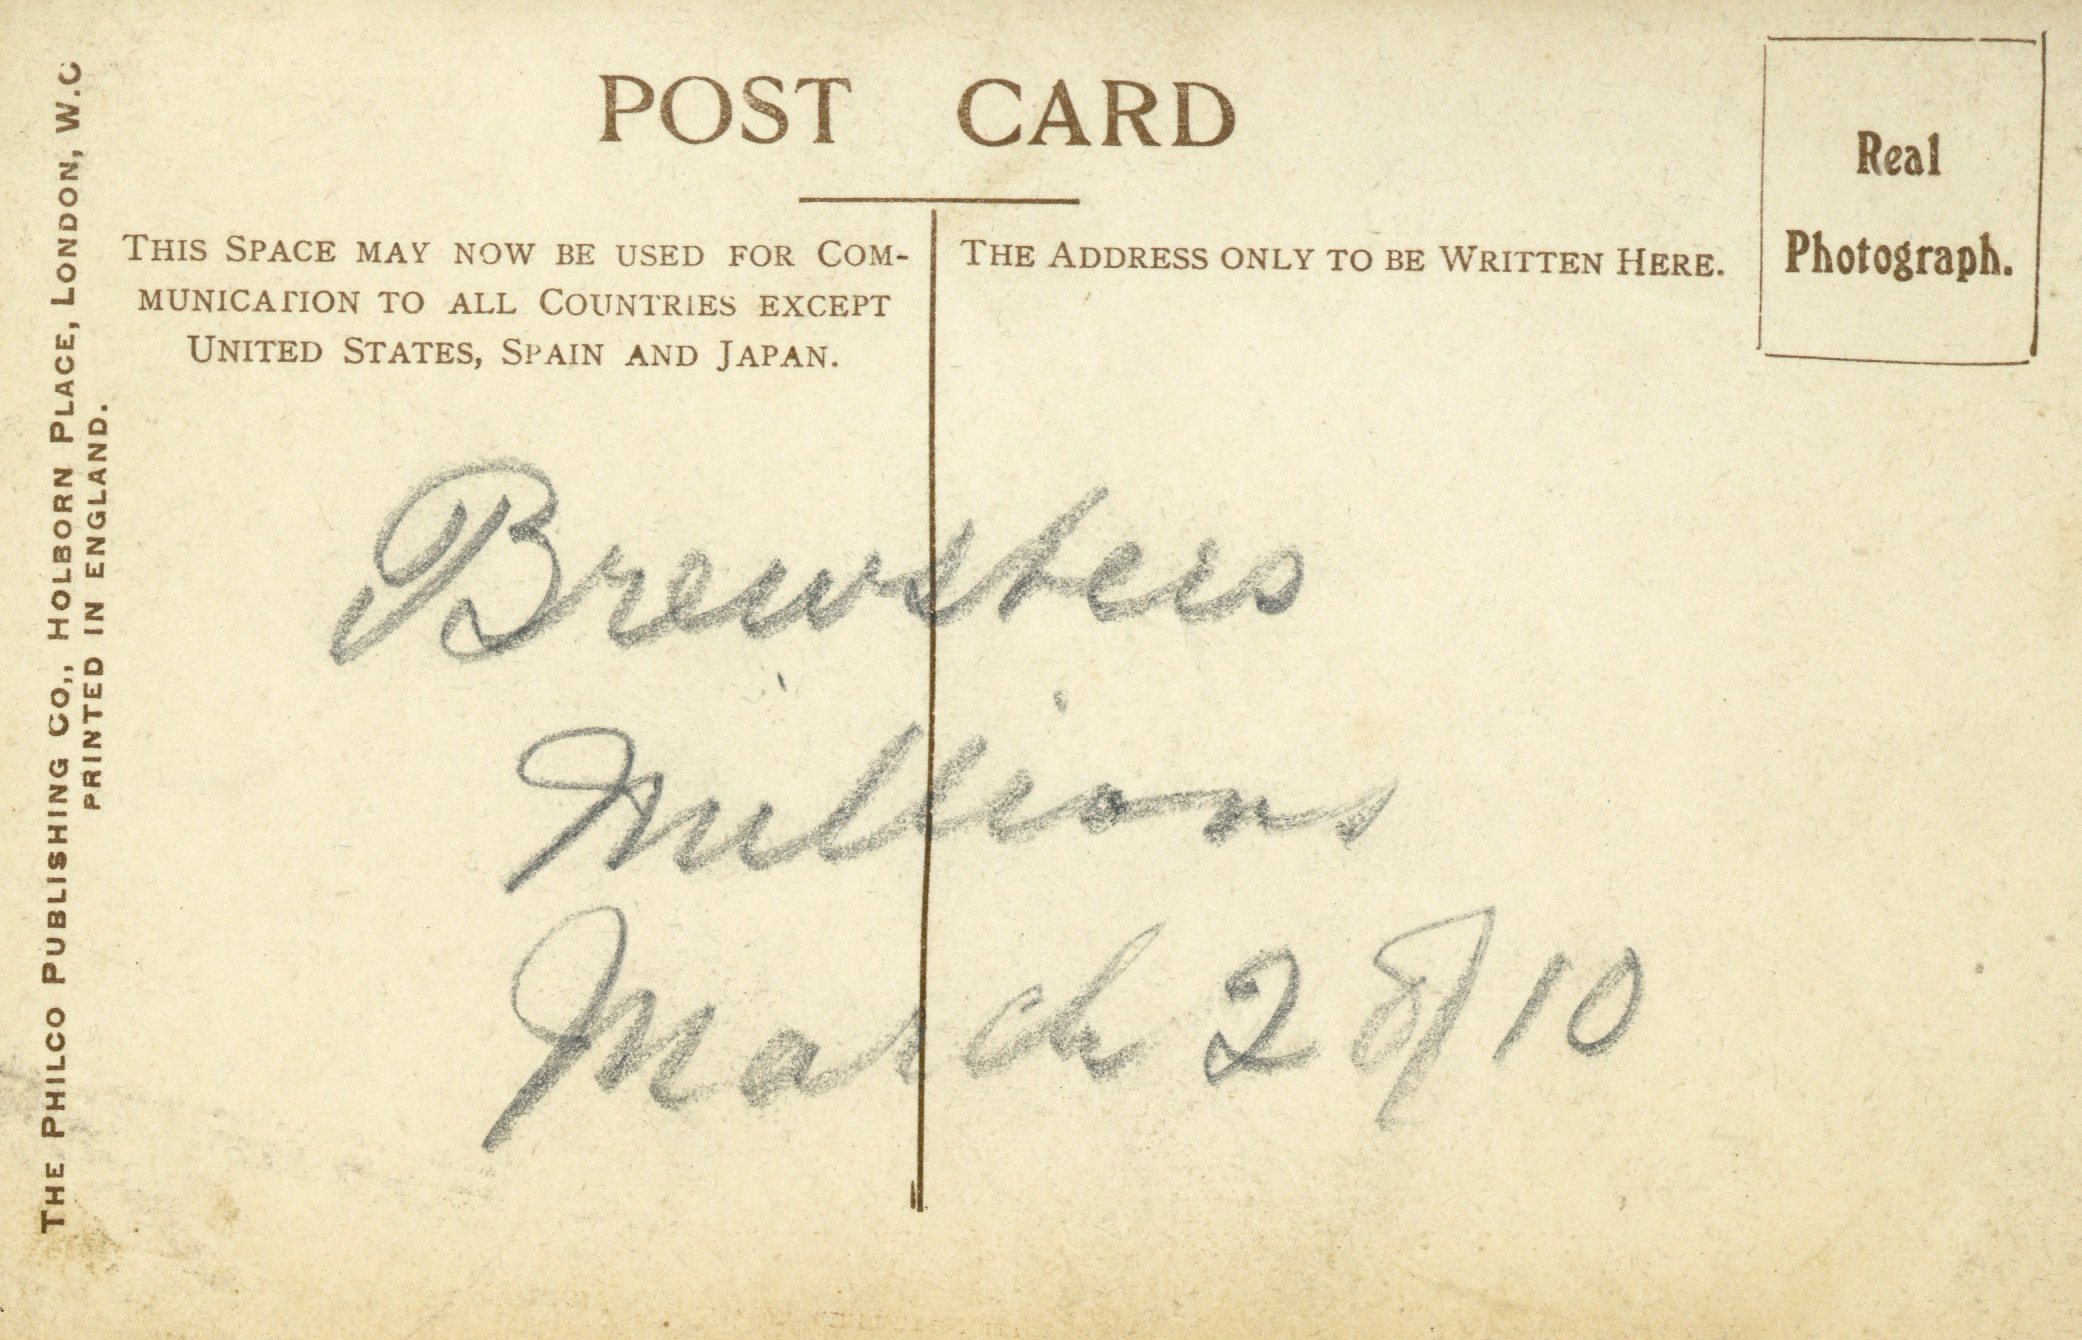 POST CARD
Real
Photograph.
THIS SPACE MAY NOW BE USED FOR COM-
MUNICATION TO ALL COUNTRIES EXCEPT
UNITED STATES, SPAIN AND JAPAN.
THE ADDRESS ONLY TO BE WRITTEN HERE.
THE PHILCO PUBLISHING CO., HOLBORN PLACE, LONDON, W.C
PRINTED IN ENGLAND.
Brewsters
Millions
March 28/10